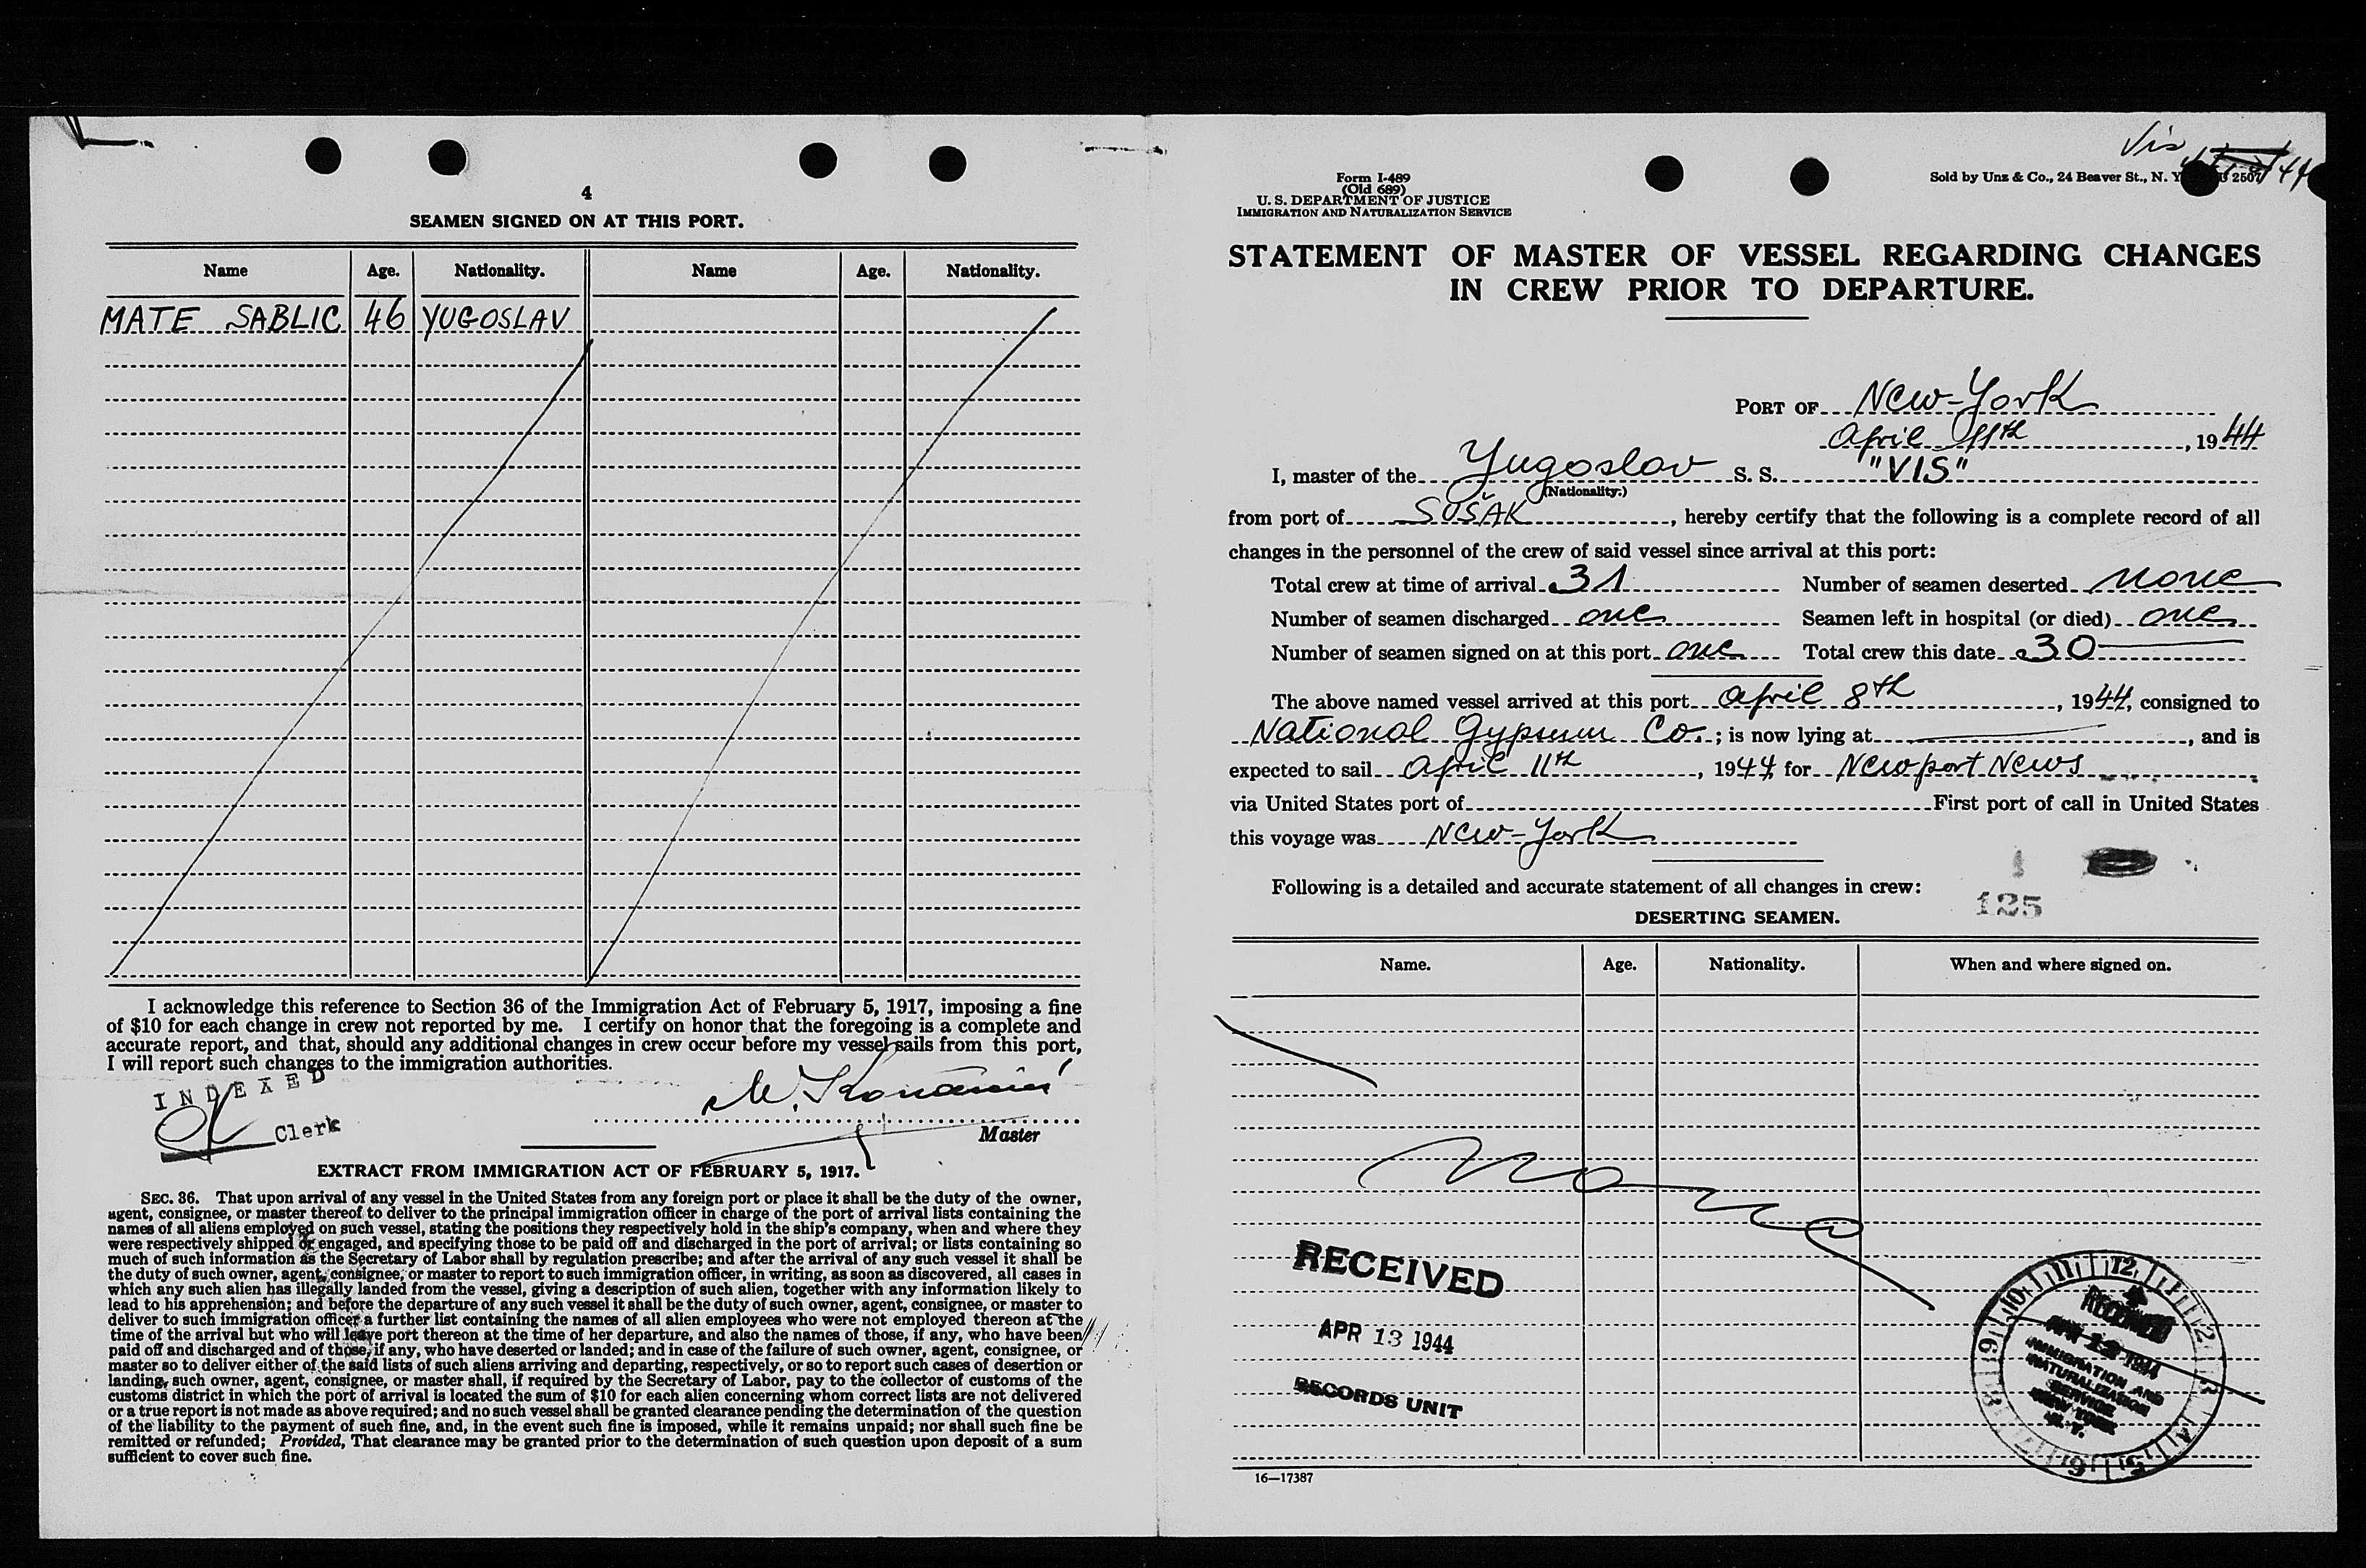 4
SEAMEN SIGNED ON AT THIS PORT.
Name Age. Nationality. Name Age. Nationality.
MATE SABLIC 46 YUGOSLAV
I acknowledge this reference to Section 36 of the Immigration Act of February 5, 1917, imposing a fine
of $10 for each change in crew not reported by me. I certify on honor that the foregoing is a complete and
accurate report, and that, should any additional changes in crew occur before my vessel sails from this port,
I will report such changes to the immigration authorities.
INDEXED
Clerk
Master
EXTRACT FROM IMMIGRATION ACT OF FEBRUARY 5, 1917.
SEC. 36. That upon arrival of any vessel in the United States from any foreign port or place it shall be the duty of the owner,
agent, consignee, or master thereof to deliver to the principal immigration officer in charge of the port of arrival lists containing the
names of all aliens employed on such vessel, stating the positions they respectively hold in the ship's company, when and where they
were respectively shipped or engaged, and specifying those to be paid off and discharged in the port of arrival; or lists containing so
much of such information as the Secretary of Labor shall by regulation prescribe; and after the arrival of any such vessel it shall be
the duty of such owner, agent, consignee, or master to report to such immigration officer, in writing, as soon as discovered, all cases in
which any such alien has illegally landed from the vessel, giving a description of such alien, together with any information likely to
lead to his apprehension; and before the departure of any such vessel it shall be the duty of such owner, agent, consignee, or master to
deliver to such immigration officer a further list containing the names of all alien employees who were not employed thereon at the
time of the arrival but who will leave port thereon at the time of her departure, and also the names of those, if any, who have been
paid off and discharged and of those, if any, who have deserted or landed; and in case of the failure of such owner, agent, consignee, or
master so to deliver either of the said lists of such aliens arriving and departing, respectively, or so to report such cases of desertion or
landing, such owner, agent, consignee, or master shall, if required by the Secretary of Labor, pay to the collector of customs of the
customs district in which the port of arrival is located the sum of $10 for each alien concerning whom correct lists are not delivered
or a true report is not made as above required; and no such vessel shall be granted clearance pending the determination of the question
of the liability to the payment of such fine, and, in the event such fine is imposed, while it remains unpaid; nor shall such fine be
remitted or refunded; Provided, That clearance may be granted prior to the determination of such question upon deposit of a sum
sufficient to cover such fine.
Vis
Form I-489
(Old 689)
U. S. DEPARTMENT OF JUSTICE
IMMIGRATION AND NATURALIZATION SERVICE
Sold by Unz & Co., 24 Beaver St., N. Y. 2507
STATEMENT OF MASTER OF VESSEL REGARDING CHANGES
IN CREW PRIOR TO DEPARTURE.
PORT OF New-York
April 11th, 1944
I, master of the Yugoslav S. S. "VIS"
(Nationality.)
from port of SUŠAK, hereby certify that the following is a complete record of all
changes in the personnel of the crew of said vessel since arrival at this port:
Total crew at time of arrival 31 Number of seamen deserted none
Number of seamen discharged one Seamen left in hospital (or died) one
Number of seamen signed on at this port one Total crew this date 30
The above named vessel arrived at this port April 8th, 1944, consigned to
National Gypsum Co.; is now lying at, and is
expected to sail April 11th, 1944 for Newport News
via United States port of First port of call in United States
this voyage was New-York
1
125
Following is a detailed and accurate statement of all changes in crew:
DESERTING SEAMEN.
Name. Age. Nationality. When and where signed on.
None
RECEIVED
APR 13 1944
RECORDS UNIT
RECEIVED
1944
IMMIGRATION AND
NATURALIZATION
SERVICE
NEW YORK
N. Y.
16—17387